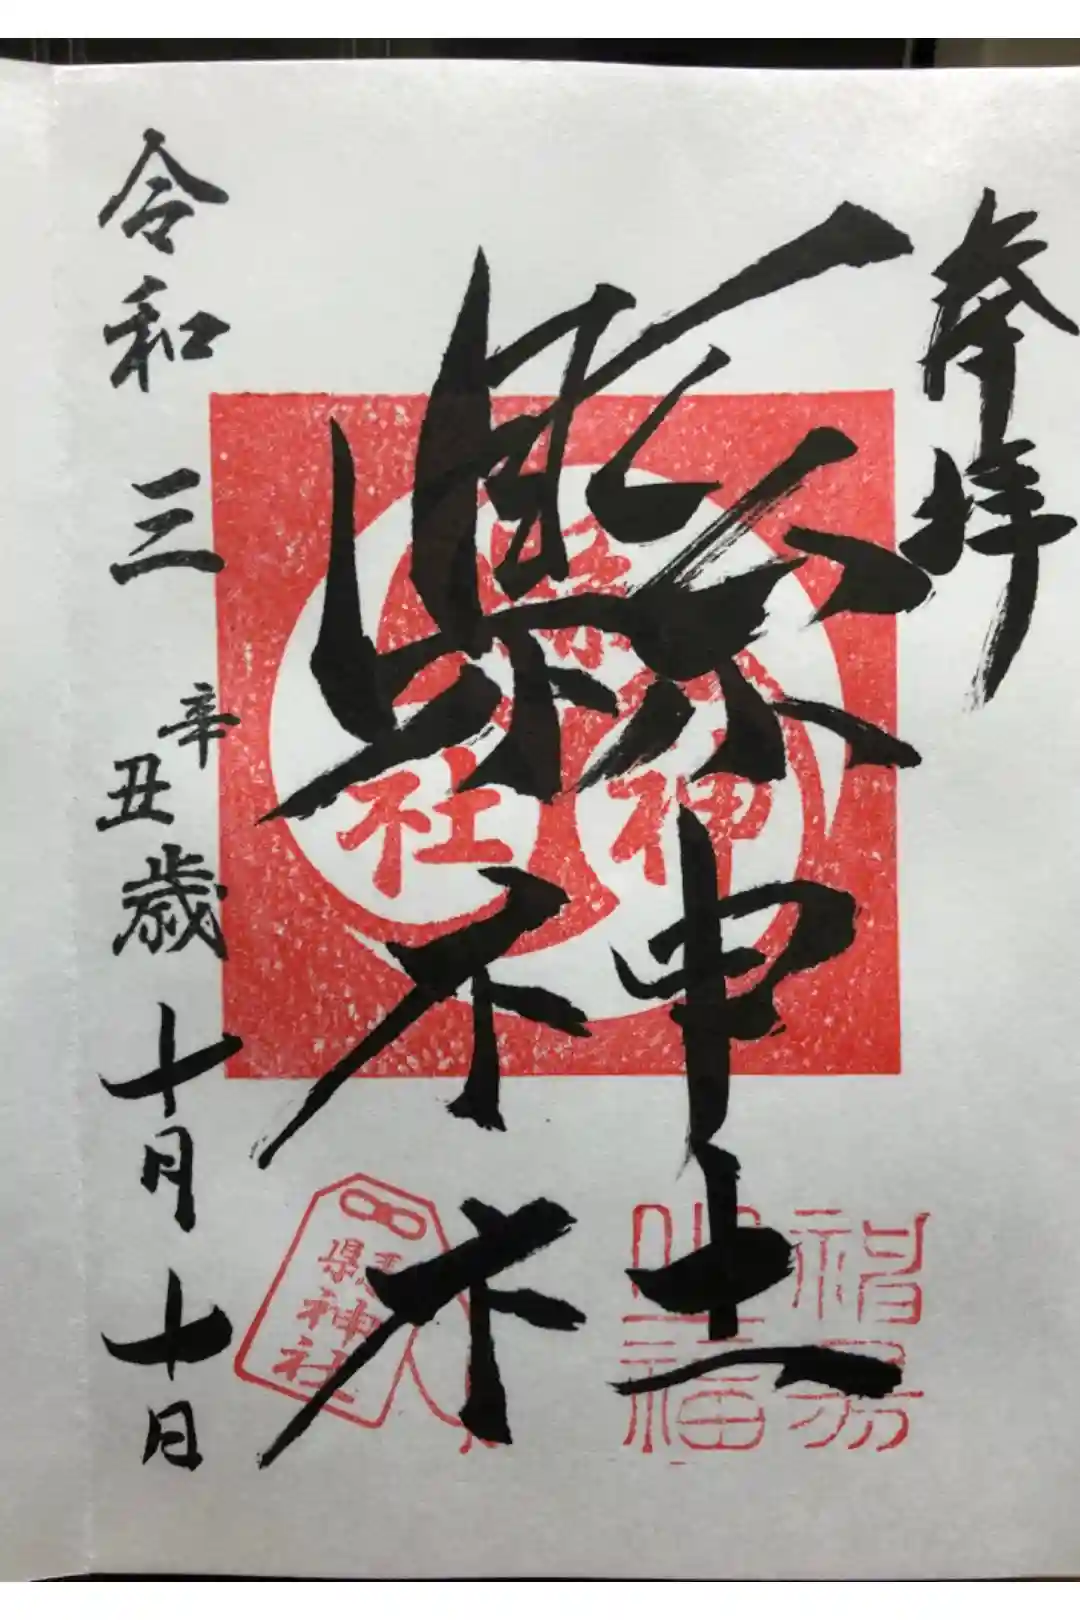 奉拝
縣神社
令和三辛丑歳十月十日
縣
神
社
縣神社